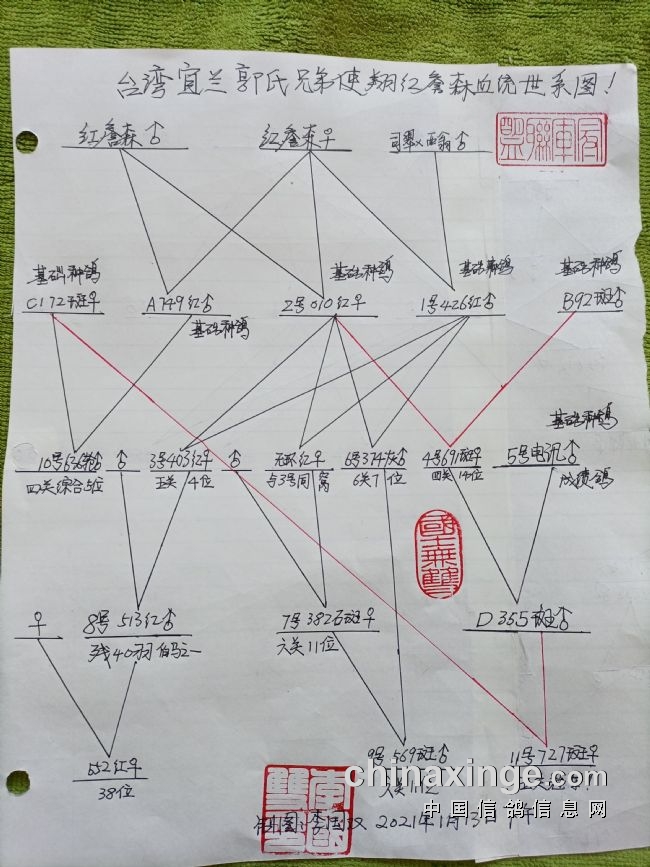 台湾宜兰郭氏兄弟快翔红詹森血统世系图!
红詹森♂ 红詹森♀ 司翠×西翁♂
基础种鸽 基础种鸽 基础种鸽 基础种鸽
C172斑♀ A749红♂ 2号010红♀ 1号426红♂ B92斑♂
基础种鸽
基础种鸽
10号 ♂ ♂ 3号403红♀ ♂ 无环红♀ 6号374灰♂ 4号691斑♀ 5号电讯♂
四关综合5位 五关4位 与3号同窝 6关7位 四关14位 成绩鸽
國士無雙
♀ 8号513红♂ 7号382石斑♀ D355斑♂
残40羽 六关11位
652红♀ 9号569斑♂ 11号727斑♀
38位 八关11位 五关
chinaxinge.com
中国信鸽信息网
制图:李国双 2021年1月13日